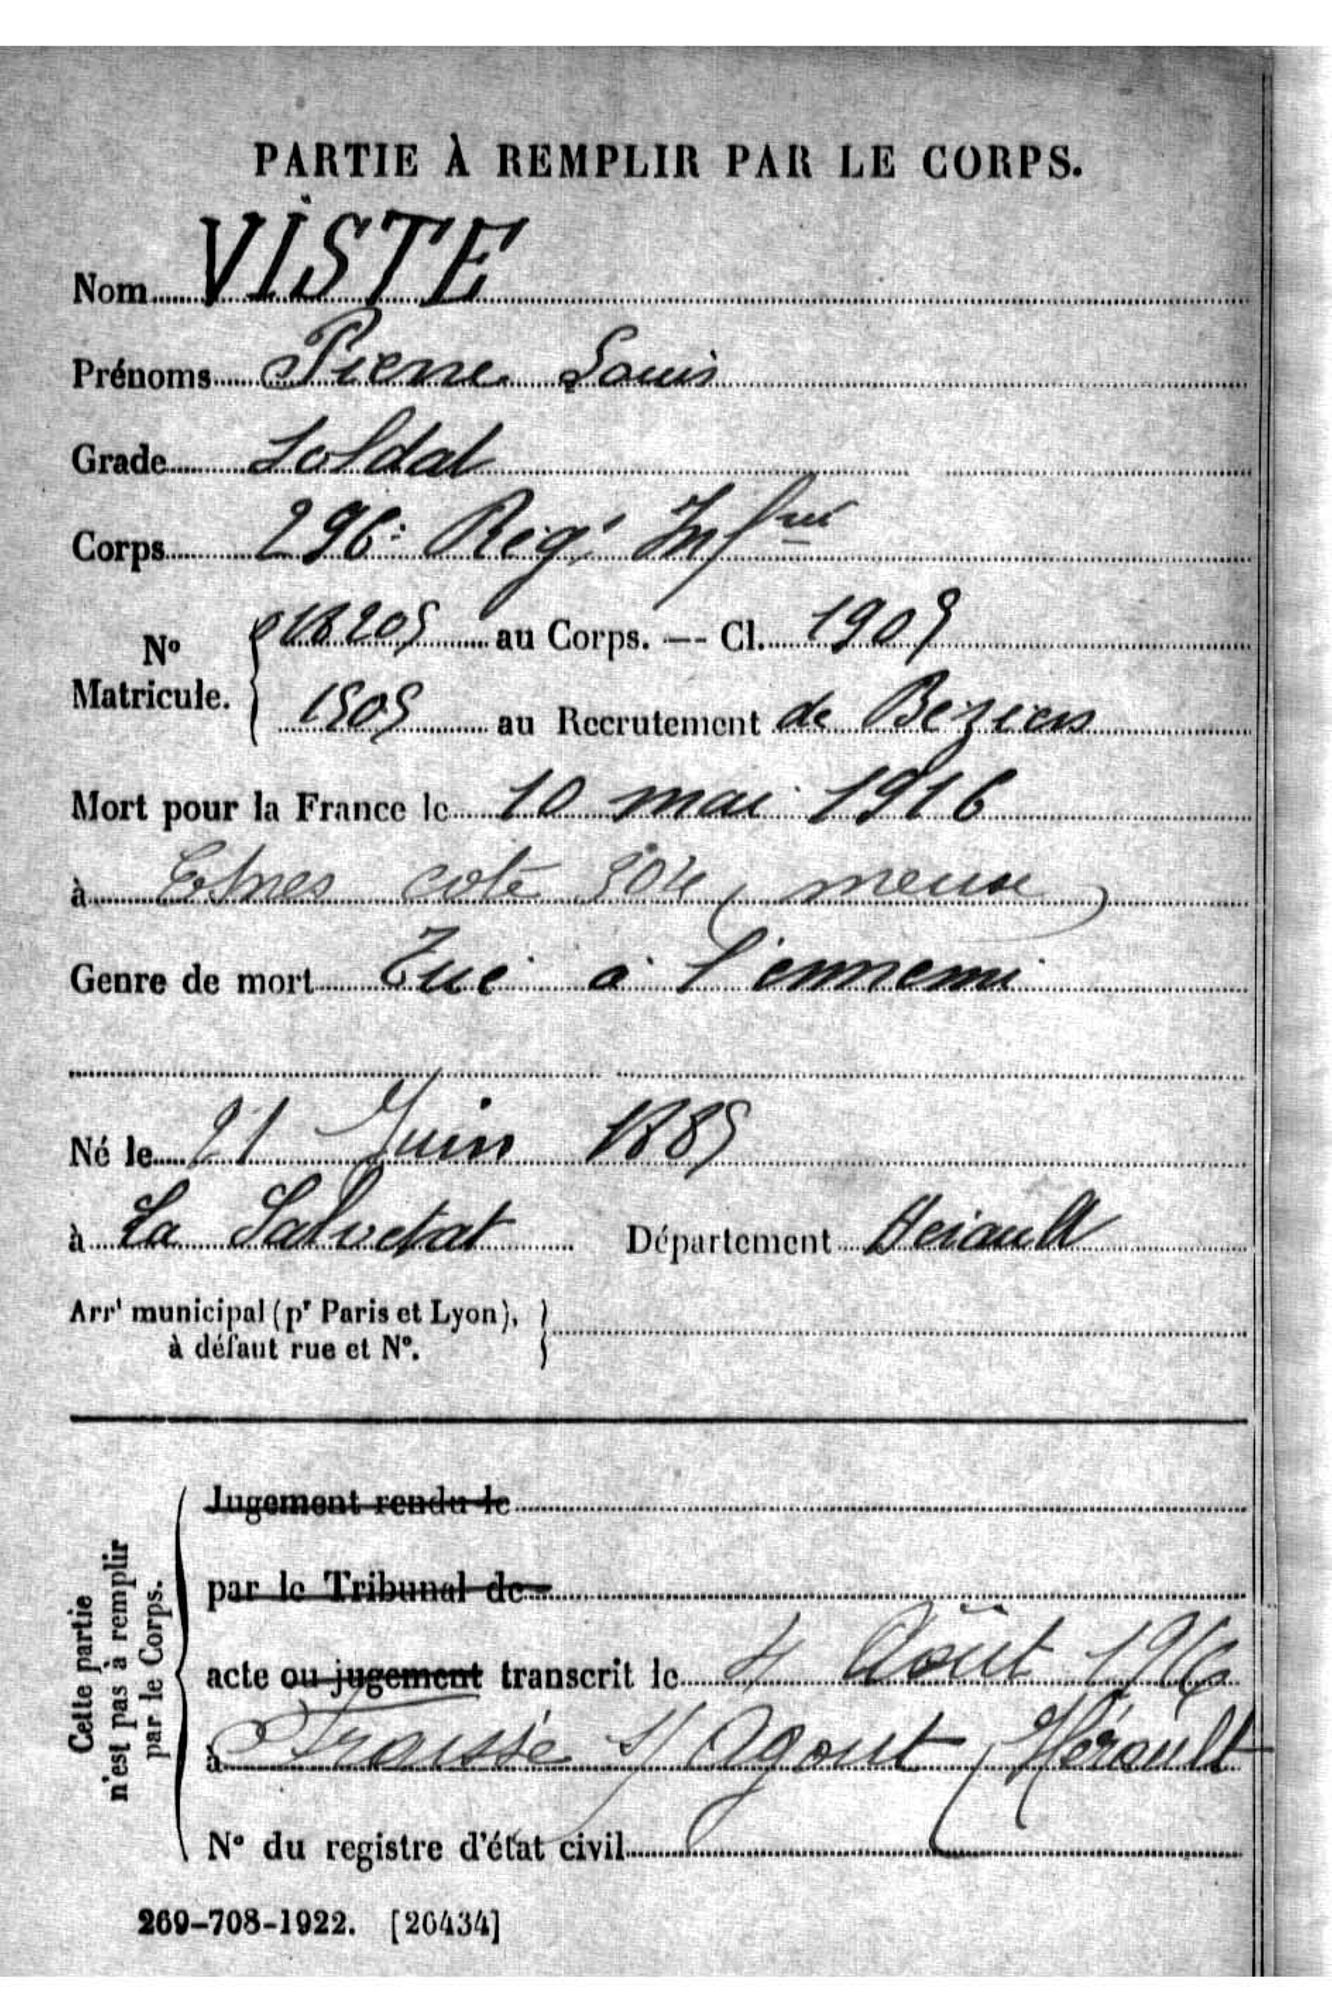 PARTIE À REMPLIR PAR LE CORPS.
Nom VISTE
Prénoms Pierre Louis
Grade Soldat
Corps 296e Régt Infrie
No Matricule. 018205 au Corps. — Cl. 1905
1505 au Recrutement de Beziers
Mort pour la France le 10 mai 1916
à Esnes cote 304 (meuse)
Genre de mort Tué à l'ennemi
Né le 21 Juin 1885
à La Salvetat Département Herault
Arrt municipal (pr Paris et Lyon),
à défaut rue et No.
Cette partie
n'est pas à remplir
par le Corps.
Jugement rendu le
par le Tribunal de
acte ou jugement transcrit le 4 Août 1916
à Fraisse s/ Agout (Hérault
No du registre d'état civil
269-708-1922. [26434]